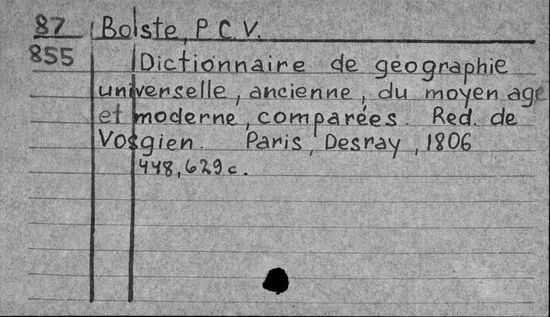 87 Bolste, P.C.V.
855 Dictionnaire de géographie
universelle, ancienne, du moyen age
et moderne, comparées. Red. de
Vosgien. Paris, Desray, 1806
448, 629 c.